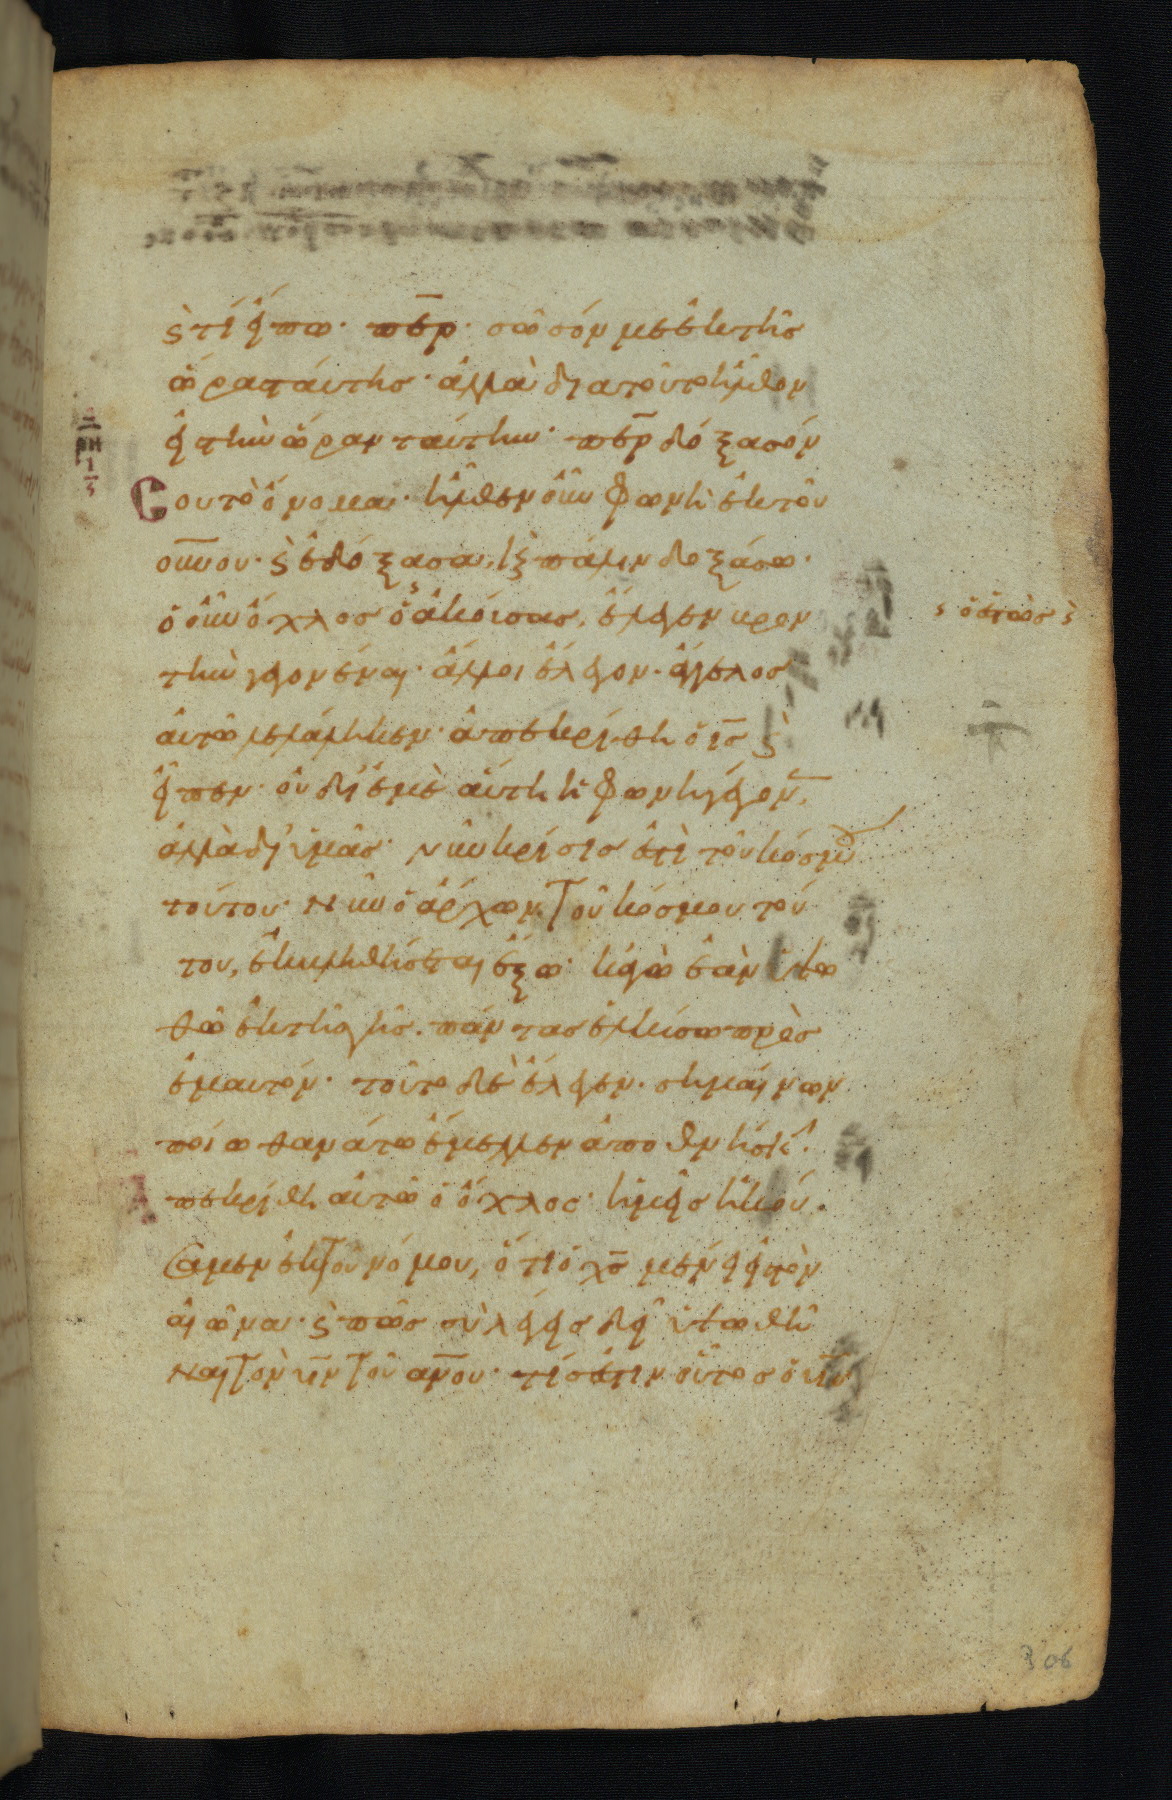 ϛ τί εἴπω· περ· σῶσόν με ἐκ τῆς
ὥρας ταύτης· ἀλλὰ διατοῦτο ἦλθον
εἰς τὴν ὥραν ταύτην· περ δόξασόν
Σου τὸ ὄνομα· ἦλθεν οὖν φωνὴ ἐκ τοῦ
οὐνου· ϛ ἐδόξασα, ϗ πάλιν δοξάσω·
ὁ οὖν ὄχλος ὁ ἀκούσας, ἔλεγεν βρον
ϛ ὁ ἑστὼς ϛ
τὴν γεγονέναι· ἄλλοι ἔλεγον· ἄγγελος
αὐτῶ λελάληκεν· ἀπεκρίθη ὁ ις ϛ
εἶπεν· οὐ δι' ἐμὲ αὕτη ἡ φωνὴ γέγον,
ἀλλὰ δι' ὑμᾶς· νῦν κρίσις ἐστὶ τοῦ κόσμου
τούτου· νῦν ὁ ἄρχων τοῦ κόσμου τού
του, ἐκβληθήσεται ἔξω· κἀγὼ ἐὰν ὑψω
θῶ ἐκ τῆς γῆς. πάντας ἑλκύσω πρὸς
ἐμαυτόν· τοῦτο δὲ ἔλεγεν. σημαίνων
ποίω θανάτω ἔμελλεν ἀποθνήσκει·
Ἀπεκρίθη αὐτῶ ὁ ὄχλος· ἡμεῖς ἠκού
σαμεν ἐκ τοῦ νόμου, ὅτι ὁ χς μένει εἰς τὸν
αἰῶνα· ϛ πῶς σὺ λέγεις δεῖ ὑψωθῆ
ναι τὸν υν τοῦ ανου· τίς ἐστιν οὗτος ὁ υς
306